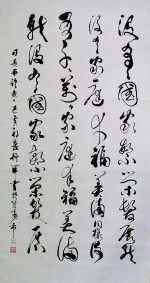 没有國家繁荣發展就
没有家庭幸福美满同样没
有千千万万家庭幸福美满
就没有國家繁荣發展